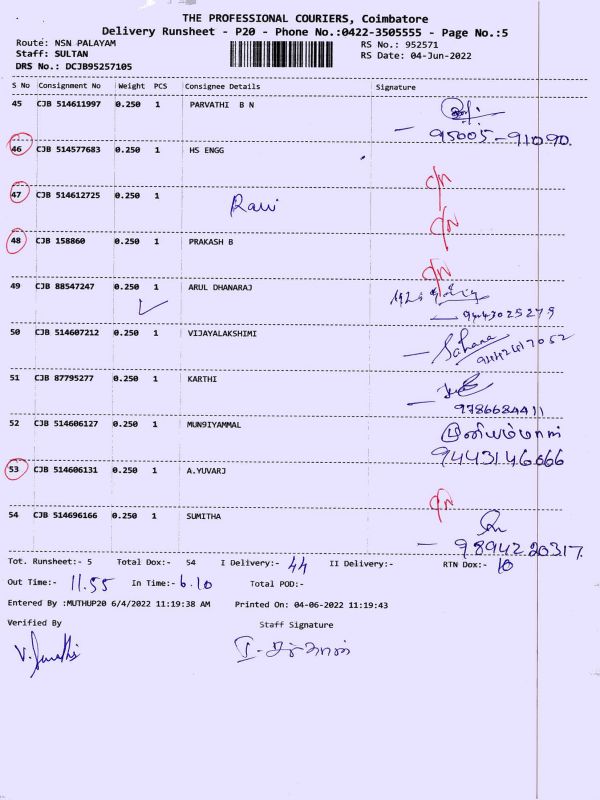 THE PROFESSIONAL COURIERS, Coimbatore
Delivery Runsheet - P20 - Phone No.:0422-3505555 - Page No.:5
Route: NSN PALAYAM RS No.: 952571
Staff: SULTAN RS Date: 04-Jun-2022
DRS No.: DCJB95257105
S No Consignment No Weight PCS Consignee Details Signature
45 CJB 514611997 0.250 1 PARVATHI B N
95005-91090.
46 CJB 514577683 0.250 1 HS ENGG
C/N
47 CJB 514612725 0.250 1 Ravi
C/N
48 CJB 158860 0.250 1 PRAKASH B
C/N
49 CJB 88547247 0.250 1 ARUL DHANARAJ
9443025279
50 CJB 514607212 0.250 1 VIJAYALAKSHIMI Sahana
51 CJB 87795277 0.250 1 KARTHI
9786684411
52 CJB 514606127 0.250 1 MUN9IYAMMAL முனியம்மாள்
9443146666
53 CJB 514606131 0.250 1 A.YUVARJ
C/N
54 CJB 514696166 0.250 1 SUMITHA
9894220317.
Tot. Runsheet:- 5 Total Dox:- 54 I Delivery:- 44 II Delivery:- RTN Dox:- 10
Out Time:- 11.55 In Time:- 6.10 Total POD:-
Entered By :MUTHUP20 6/4/2022 11:19:38 AM Printed On: 04-06-2022 11:19:43
Verified By Staff Signature